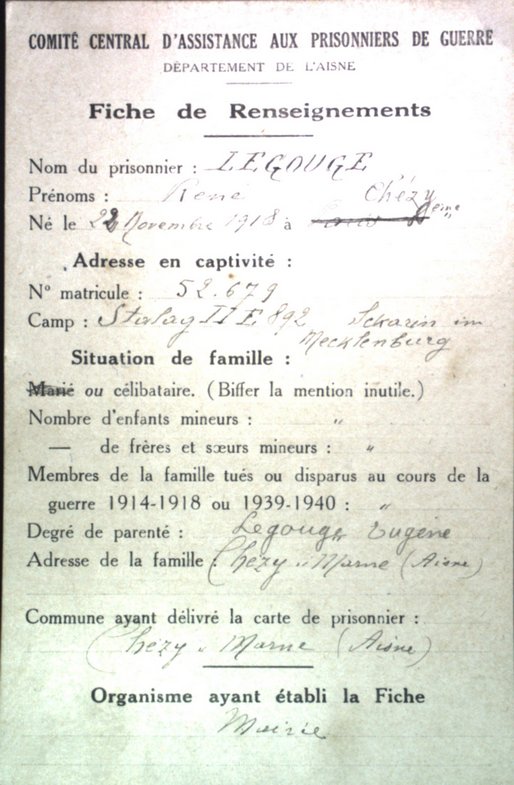 COMITÉ CENTRAL D'ASSISTANCE AUX PRISONNIERS DE GUERRE
DÉPARTEMENT DE L'AISNE
Fiche de Renseignements
Nom du prisonnier : LEGOUGE
Prénoms : René Chézy
Né le 22 Novembre 1918 à
Adresse en captivité :
N° matricule : 52.679
Camp : Stalag II E 892
Mecklenburg
Situation de famille :
Marié ou célibataire. (Biffer la mention inutile.)
Nombre d'enfants mineurs : "
— de frères et sœurs mineurs : "
Membres de la famille tués ou disparus au cours de la
guerre 1914-1918 ou 1939-1940 : "
Degré de parenté : Legouge Eugène
Adresse de la famille : Chézy s Marne (Aisne)
Commune ayant délivré la carte de prisonnier :
Chézy s Marne (Aisne)
Organisme ayant établi la Fiche
Mairie